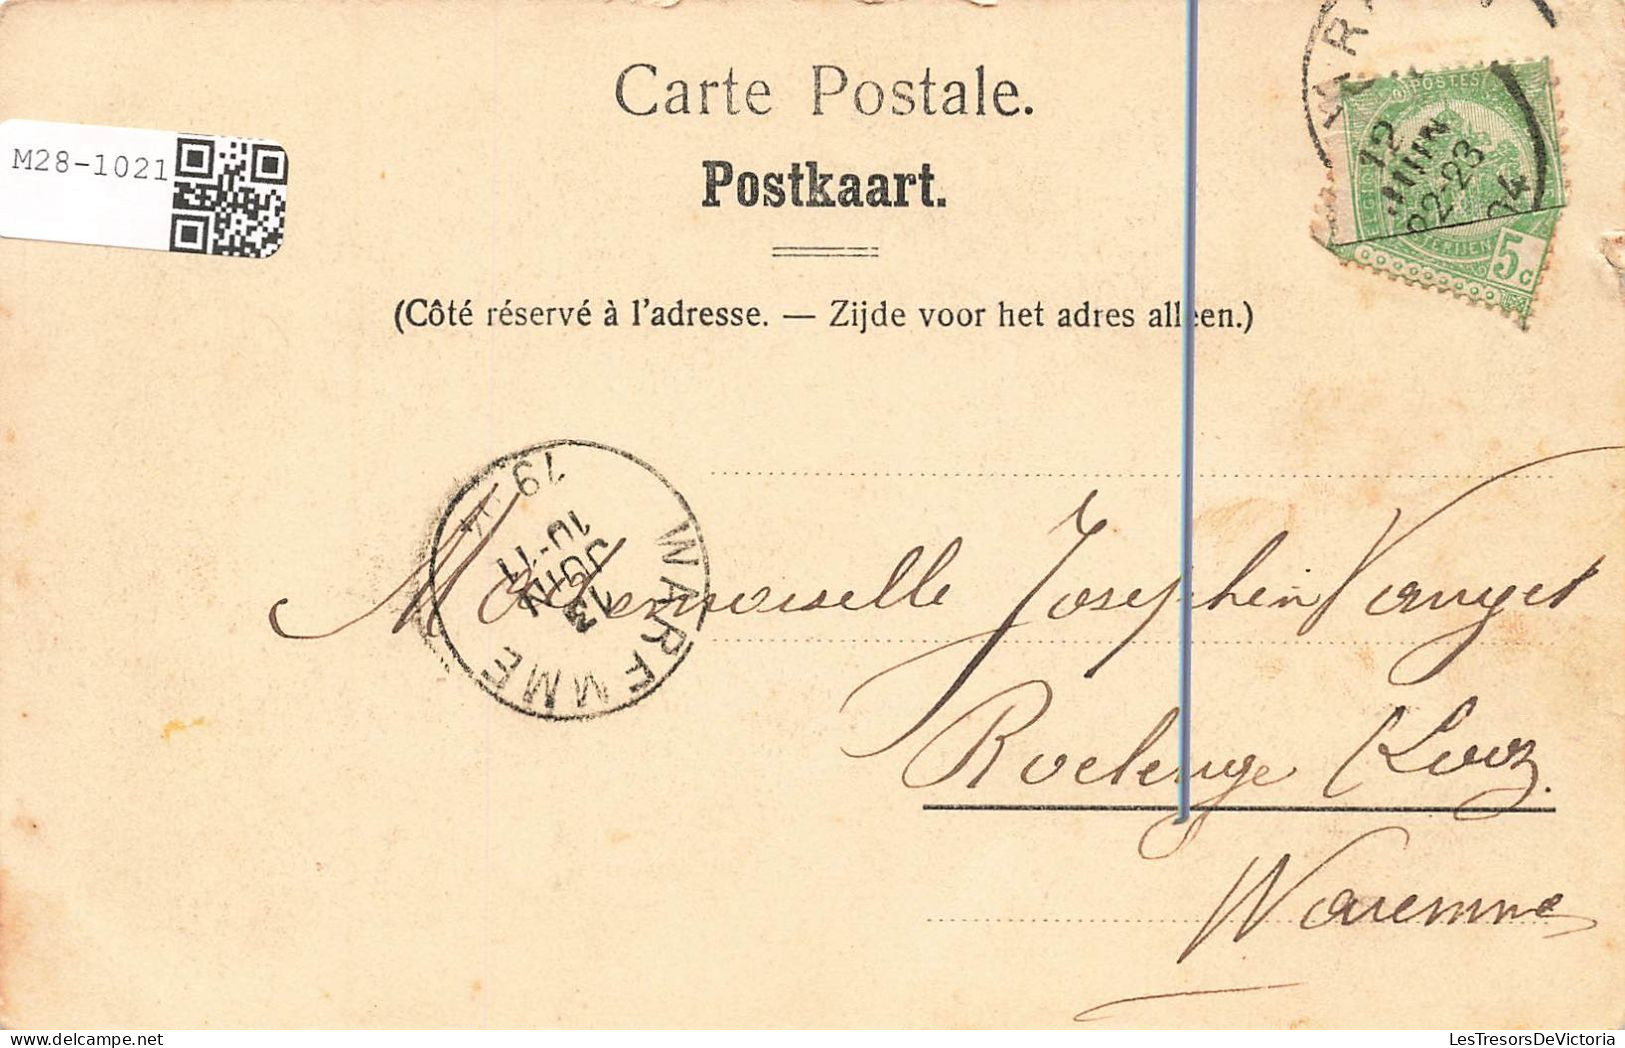 Carte Postale.
Postkaart.
M28-1021
(Côté réservé à l'adresse. — Zijde voor het adres alleen.)
POSTES
12
JUIN
22-23
04
5 c
WAREMME
10-11
JUIN
13
19
Mademoiselle Josephin Vanget
Roclenge (Looz.
Waremme
LesTresorsDeVictoria